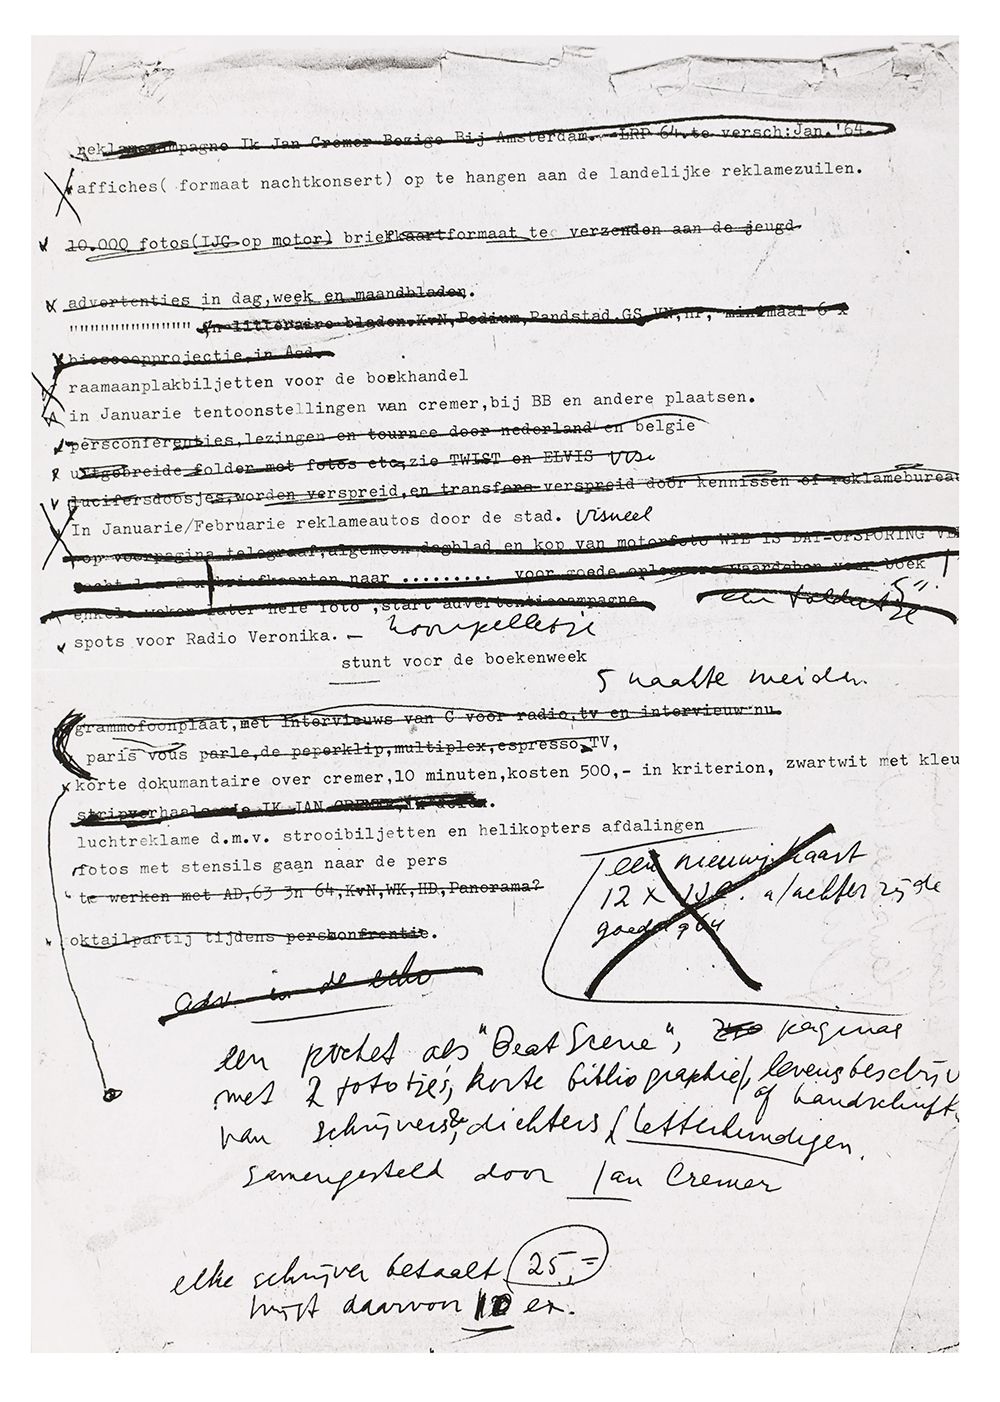 reklamecampagne Ik Jan Cremer Bezige Bij Amsterdam. -LRP 64.te versch:Jan.'64.
affiches( formaat nachtkonsert) op te hangen aan de landelijke reklamezuilen.
10.000 fotos(IJC op motor) briefkaartformaat te verzenden aan de jeugd
advertenties in dag,week en maandbladen.
"""""""""""""" in litteraire bladen.KvN,Podium,Randstad,GS,VN,HP, minimaal 6 x
bioscoopprojectie,in Asd.
raamaanplakbiljetten voor de boekhandel
in Januarie tentoonstellingen van cremer,bij BB en andere plaatsen.
persconferenties,lezingen en tournee door nederland en belgie
uitgebreide folder met fotos etc,zie TWIST en ELVIS
lucifersdoosjes,worden verspreid,en transfers verspreid door kennissen of reklamebureau
In Januarie/Februarie reklameautos door de stad. visueel
op voorpagina telegraaf,algemeen dagblad en kop van motorfoto WIE IS DAT-OPSPORING VE
briefkaanten naar ......... voor goede boek !
enkele weken later hele foto ,start advertentiecampagne
spots voor Radio Veronika. —
stunt voor de boekenweek
5 naakte meiden.
grammofoonplaat,met Intervieuws van C voor radio,tv en intervieuw nu.
paris vous parle,de peperklip,multiplex,espresso,TV,
korte dokumantaire over cremer,10 minuten,kosten 500,- in kriterion, zwartwit met kleu
stripverhaal IK JAN CREMER,
luchtreklame d.m.v. strooibiljetten en helikopters afdalingen
fotos met stensils gaan naar de pers
te werken met AD,63 3n 64,KvN,WK,HD,Panorama?
een nieuwj.kaart
12 x IJC. a/achter zijde
oktailpartij tijdens persconfrentie.
adv in de echo
een pocket als "Beat Scene", paginas
met 2 fototjes, korte bibliographie/, levensbeschrijv
of handschrift
van schrijvers & dichters / letterkundigen.
samengesteld door Jan Cremer
elke schrijver betaalt 25,=
krijgt daarvoor 10 ex.